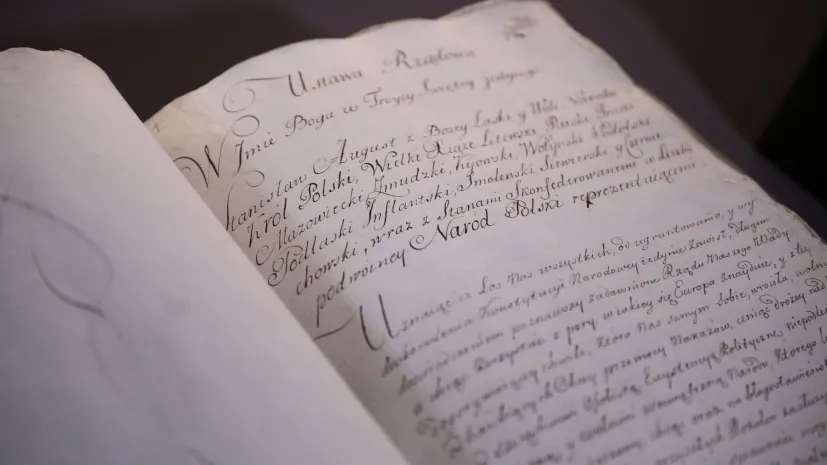 Ustawa Rządowa
W Imie Boga w Troycy Swiętey jedynego
Stanisław August z Bożey Łaski y Woli Narodu
Król Polski, Wielki Xiąże Litewski, Ruski, Pruski
Mazowiecki, Zmudzki, Kijowski, Wołyński, Podolski
Podlaski, Inflantski, Smoleński, Siewierski, y Czernie
chowski, wraz z Stanami Skonfederowanemi w liczbie
podwoiney Naród Polski reprezentuiącemi
Uznaiąc iż Los Nas wszystkich, od ugruntowania, y wy
doskonalenia Konstytucyi Narodowey iedynie zawisł, długim
doswiadczeniem poznawszy zadawnione Rządu naszego Wady,
a chcąc korzystać z pory, w iakiey się Europa znayduie, y z tey
dogorywaiącey chwili, która Nas samym sobie wrociła, wolni
od hanbiących Obcey przemocy Nakazów, ceniąc drożey nad
Exystencyą Polityczną, niepodległość
zewnętrzną Narodu, którego
chcąc oraz na błogosławieństwo